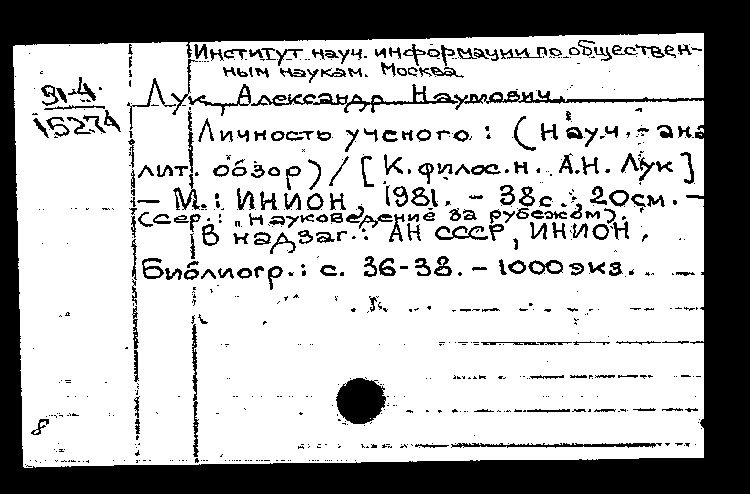 Институт науч. информации по обществен-
ным наукам. Москва
Лук, Александр Наумович.
81-4
15274
Личность ученого: (Науч.-ана
лит. обзор) / [К.филос.н. А.Н. Лук]
— М.: ИНИОН, 1981. - 38с.; 20см. —
(Сер.: "Науковедение за рубежом).
В надзаг.: АН СССР, ИНИОН.
Библиогр.: с. 36-38. - 1000экз.
8